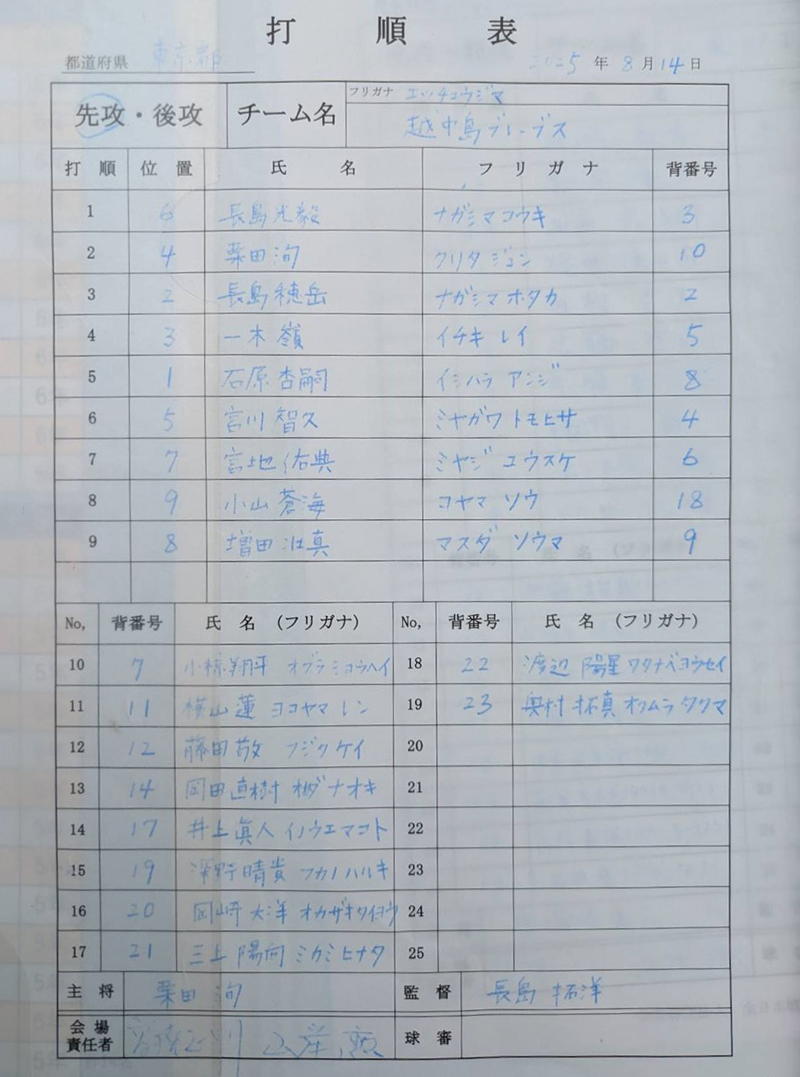 打順表
都道府県 東京都 2025年8月14日
先攻・後攻 チーム名 フリガナ エッチュウジマ
越中島ブレーブス
打順 位置 氏名 フリガナ 背番号
1 6 長島光毅 ナガシマコウキ 3
2 4 栗田洵 クリタ ジュン 10
3 2 長島穂岳 ナガシマ ホタカ 2
4 3 一木嶺 イチキ レイ 5
5 1 石原杏嗣 イシハラ アンジ 8
6 5 宮川智久 ミヤガワ トモヒサ 4
7 7 宮地佑典 ミヤジ ユウスケ 6
8 9 小山蒼海 コヤマ ソウ 18
9 8 増田 マスダ ソウマ 9
No, 背番号 氏名 (フリガナ) No, 背番号 氏名 (フリガナ)
10 7 小椋翔平 オグラ ショウヘイ 18 22 渡辺 陽星 ワタナベ ヨウセイ
11 11 横山蓮 ヨコヤマ レン 19 23 奥村 拓真 オクムラ タクマ
12 12 藤田敬 フジタ ケイ 20
13 14 岡田直樹 オカダ ナオキ 21
14 17 井上眞人 イノウエマコト 22
15 19 深野晴貴 フカノ ハルキ 23
16 20 岡崎 大洋 オカザキタイヨウ 24
17 21 三上 陽向 ミカミ ヒナタ 25
主将 栗田 洵 監督 長島 拓洋
会場責任者 球審